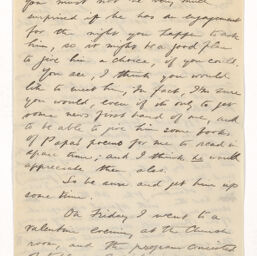 you must not be very much
surprised if he has an engagement
for the night you happen to ask
him, so it might be a good plan
to give him a choice, if you could.
You see, I think you would
like to meet him, in fact, I'm sure
you would, even if its only to get
some news first hand of me, and
to be able to give him some books
of Papa's poems for me to read in
spare time; and I think he would
appreciate them also.
So be sure and get him up
some time.
On Friday I went to a
Valentine evening, at the Church
room, and the program consisted